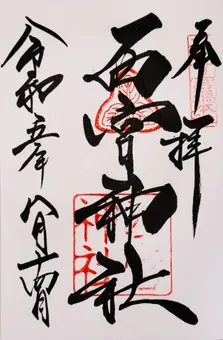 奉拝
西宮神社
令和五年八月